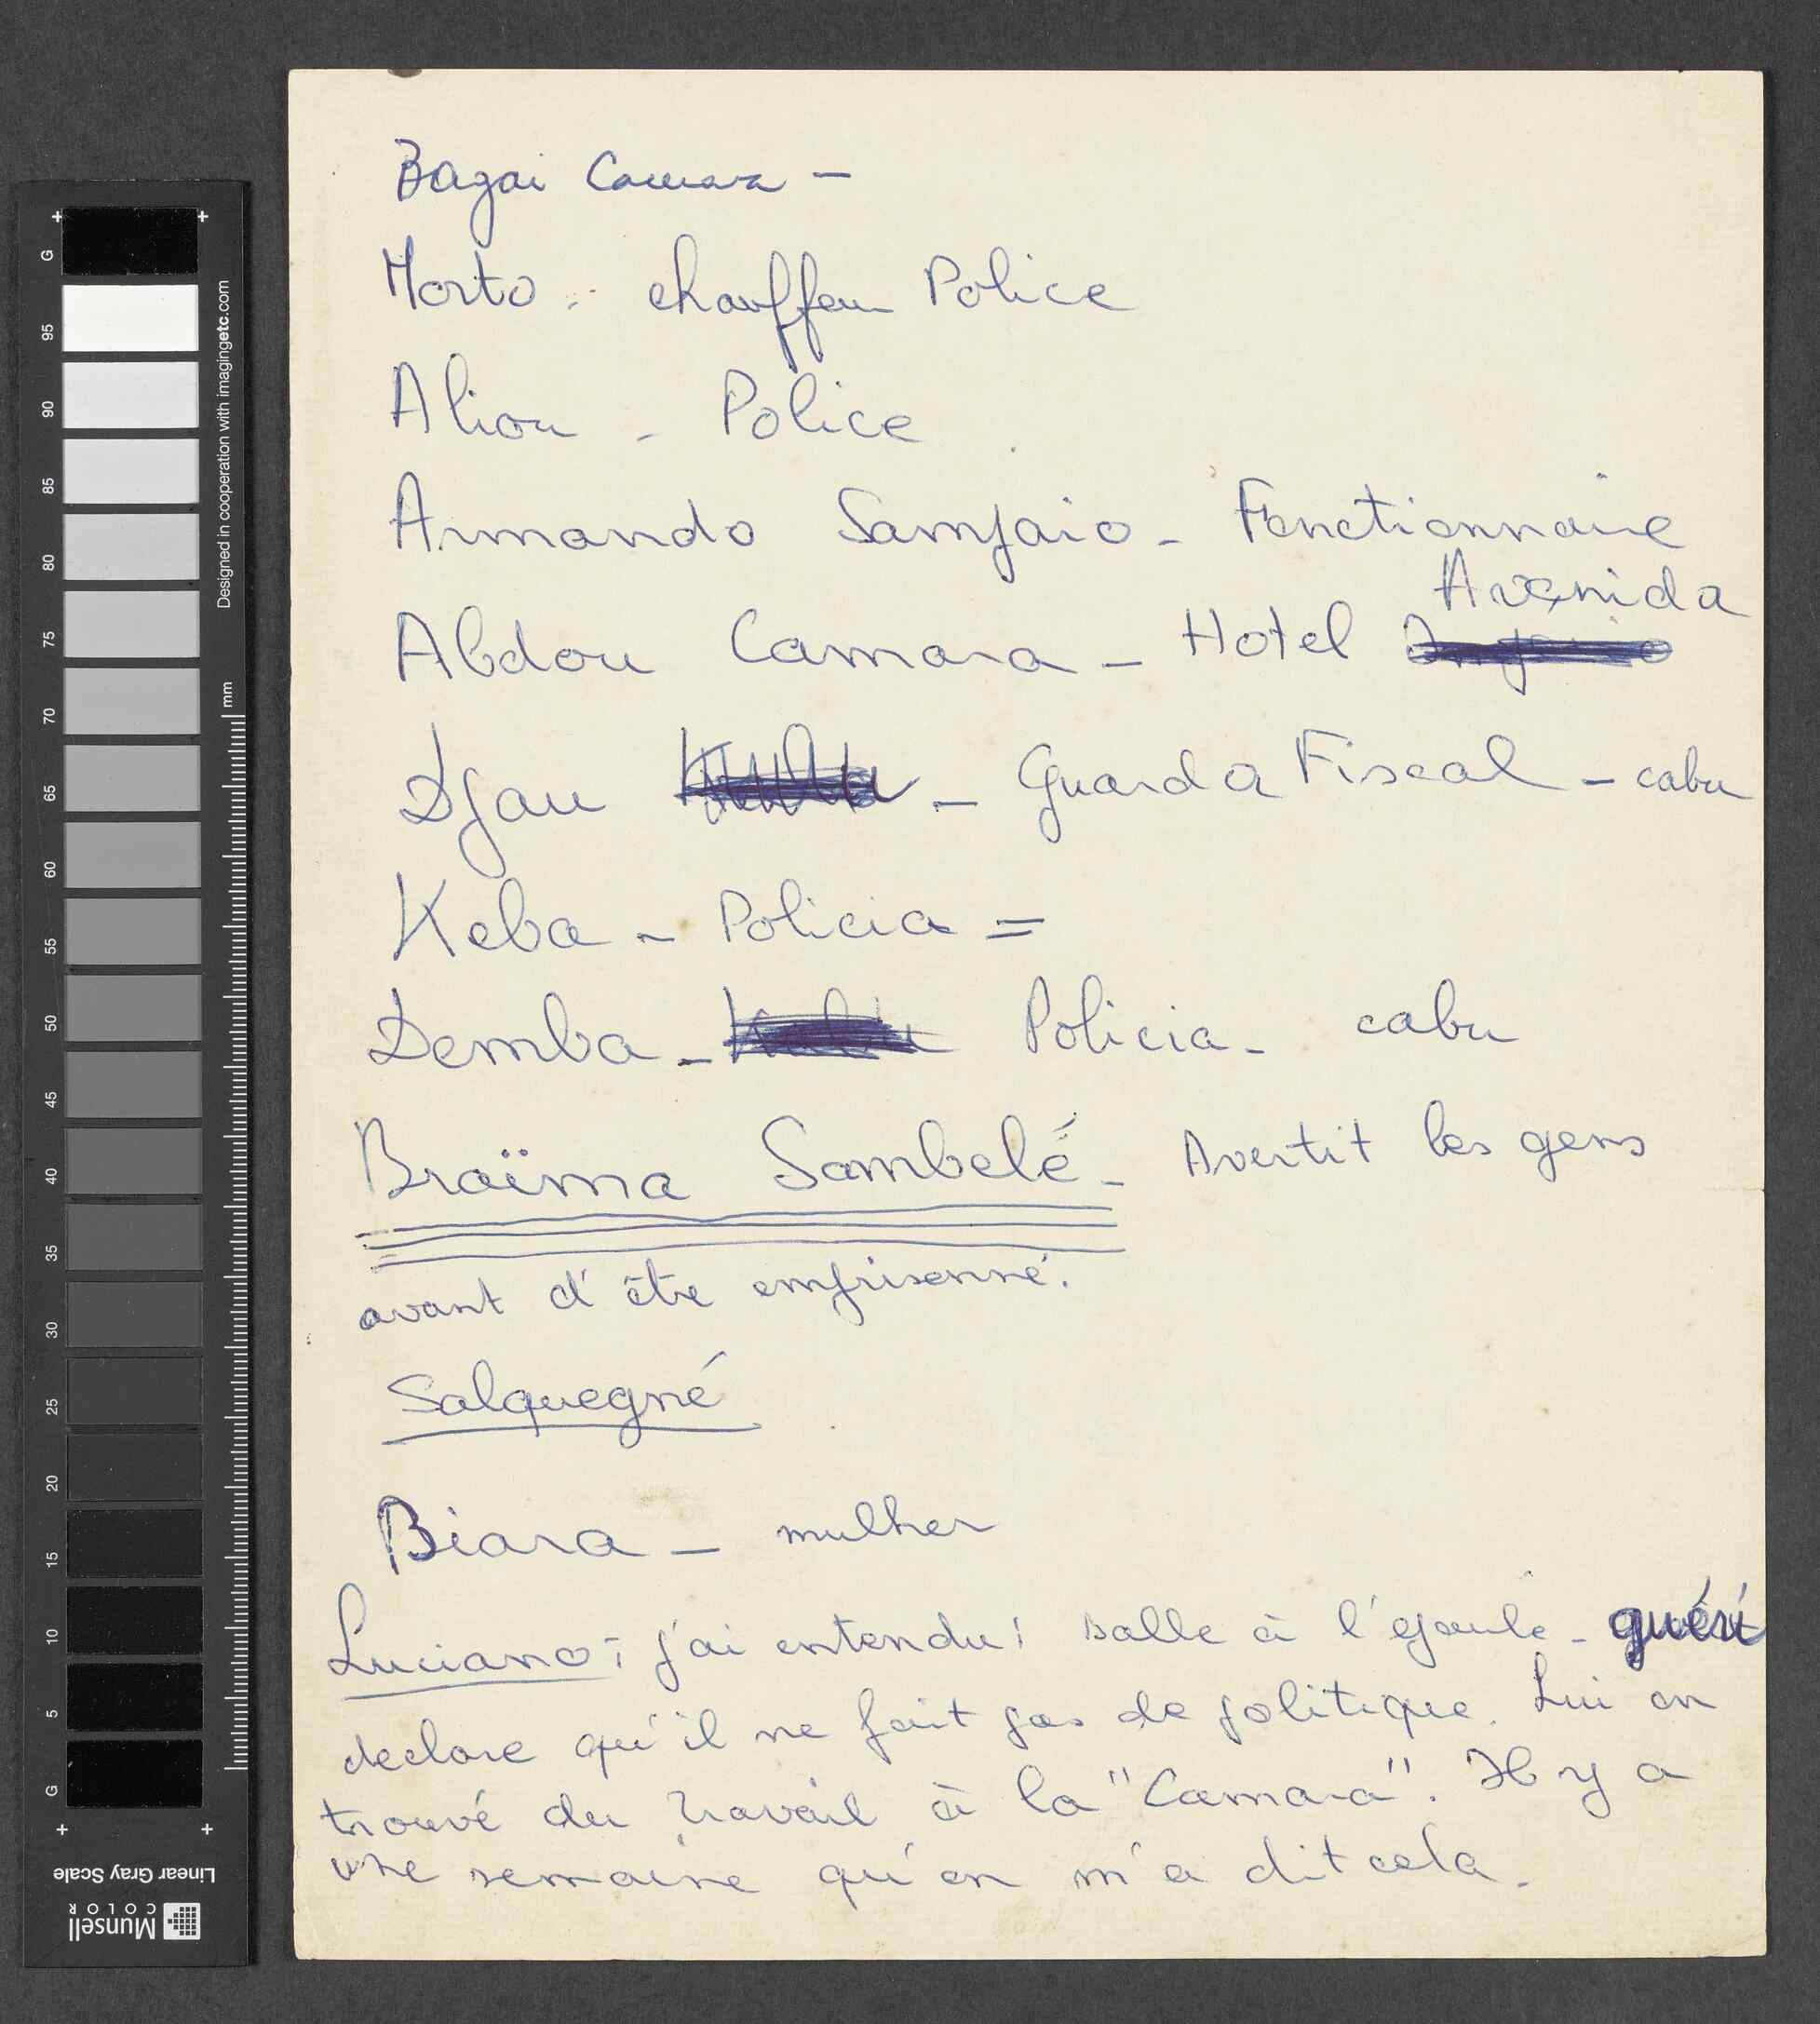 Bagai Camara -
Morto - chauffeur Police
Aliou - Police
Armando Sampaio - Fonctionnaire
Avenida
Abdou Camara - Hotel
Djau - Guarda Fiscal - cabu
Keba - Policia =
Demba - Policia - cabu
Braïma Sambelé - Avertit les gens
avant d'être emprisonné.
Salquegné
Biara - mulher
Luciano; j'ai entendu: balle à l'epaule - guéri
declare qu'il ne fait pas de politique. Lui on
trouvé du travail à la "Camara". Il y a
une semaine qu'on m'a dit cela.
G
95
90
85
80
75
70
65
60
55
50
45
40
35
30
25
20
15
10
5
G
Designed in cooperation with imagingetc.com
mm
Linear Gray Scale
Munsell
COLOR